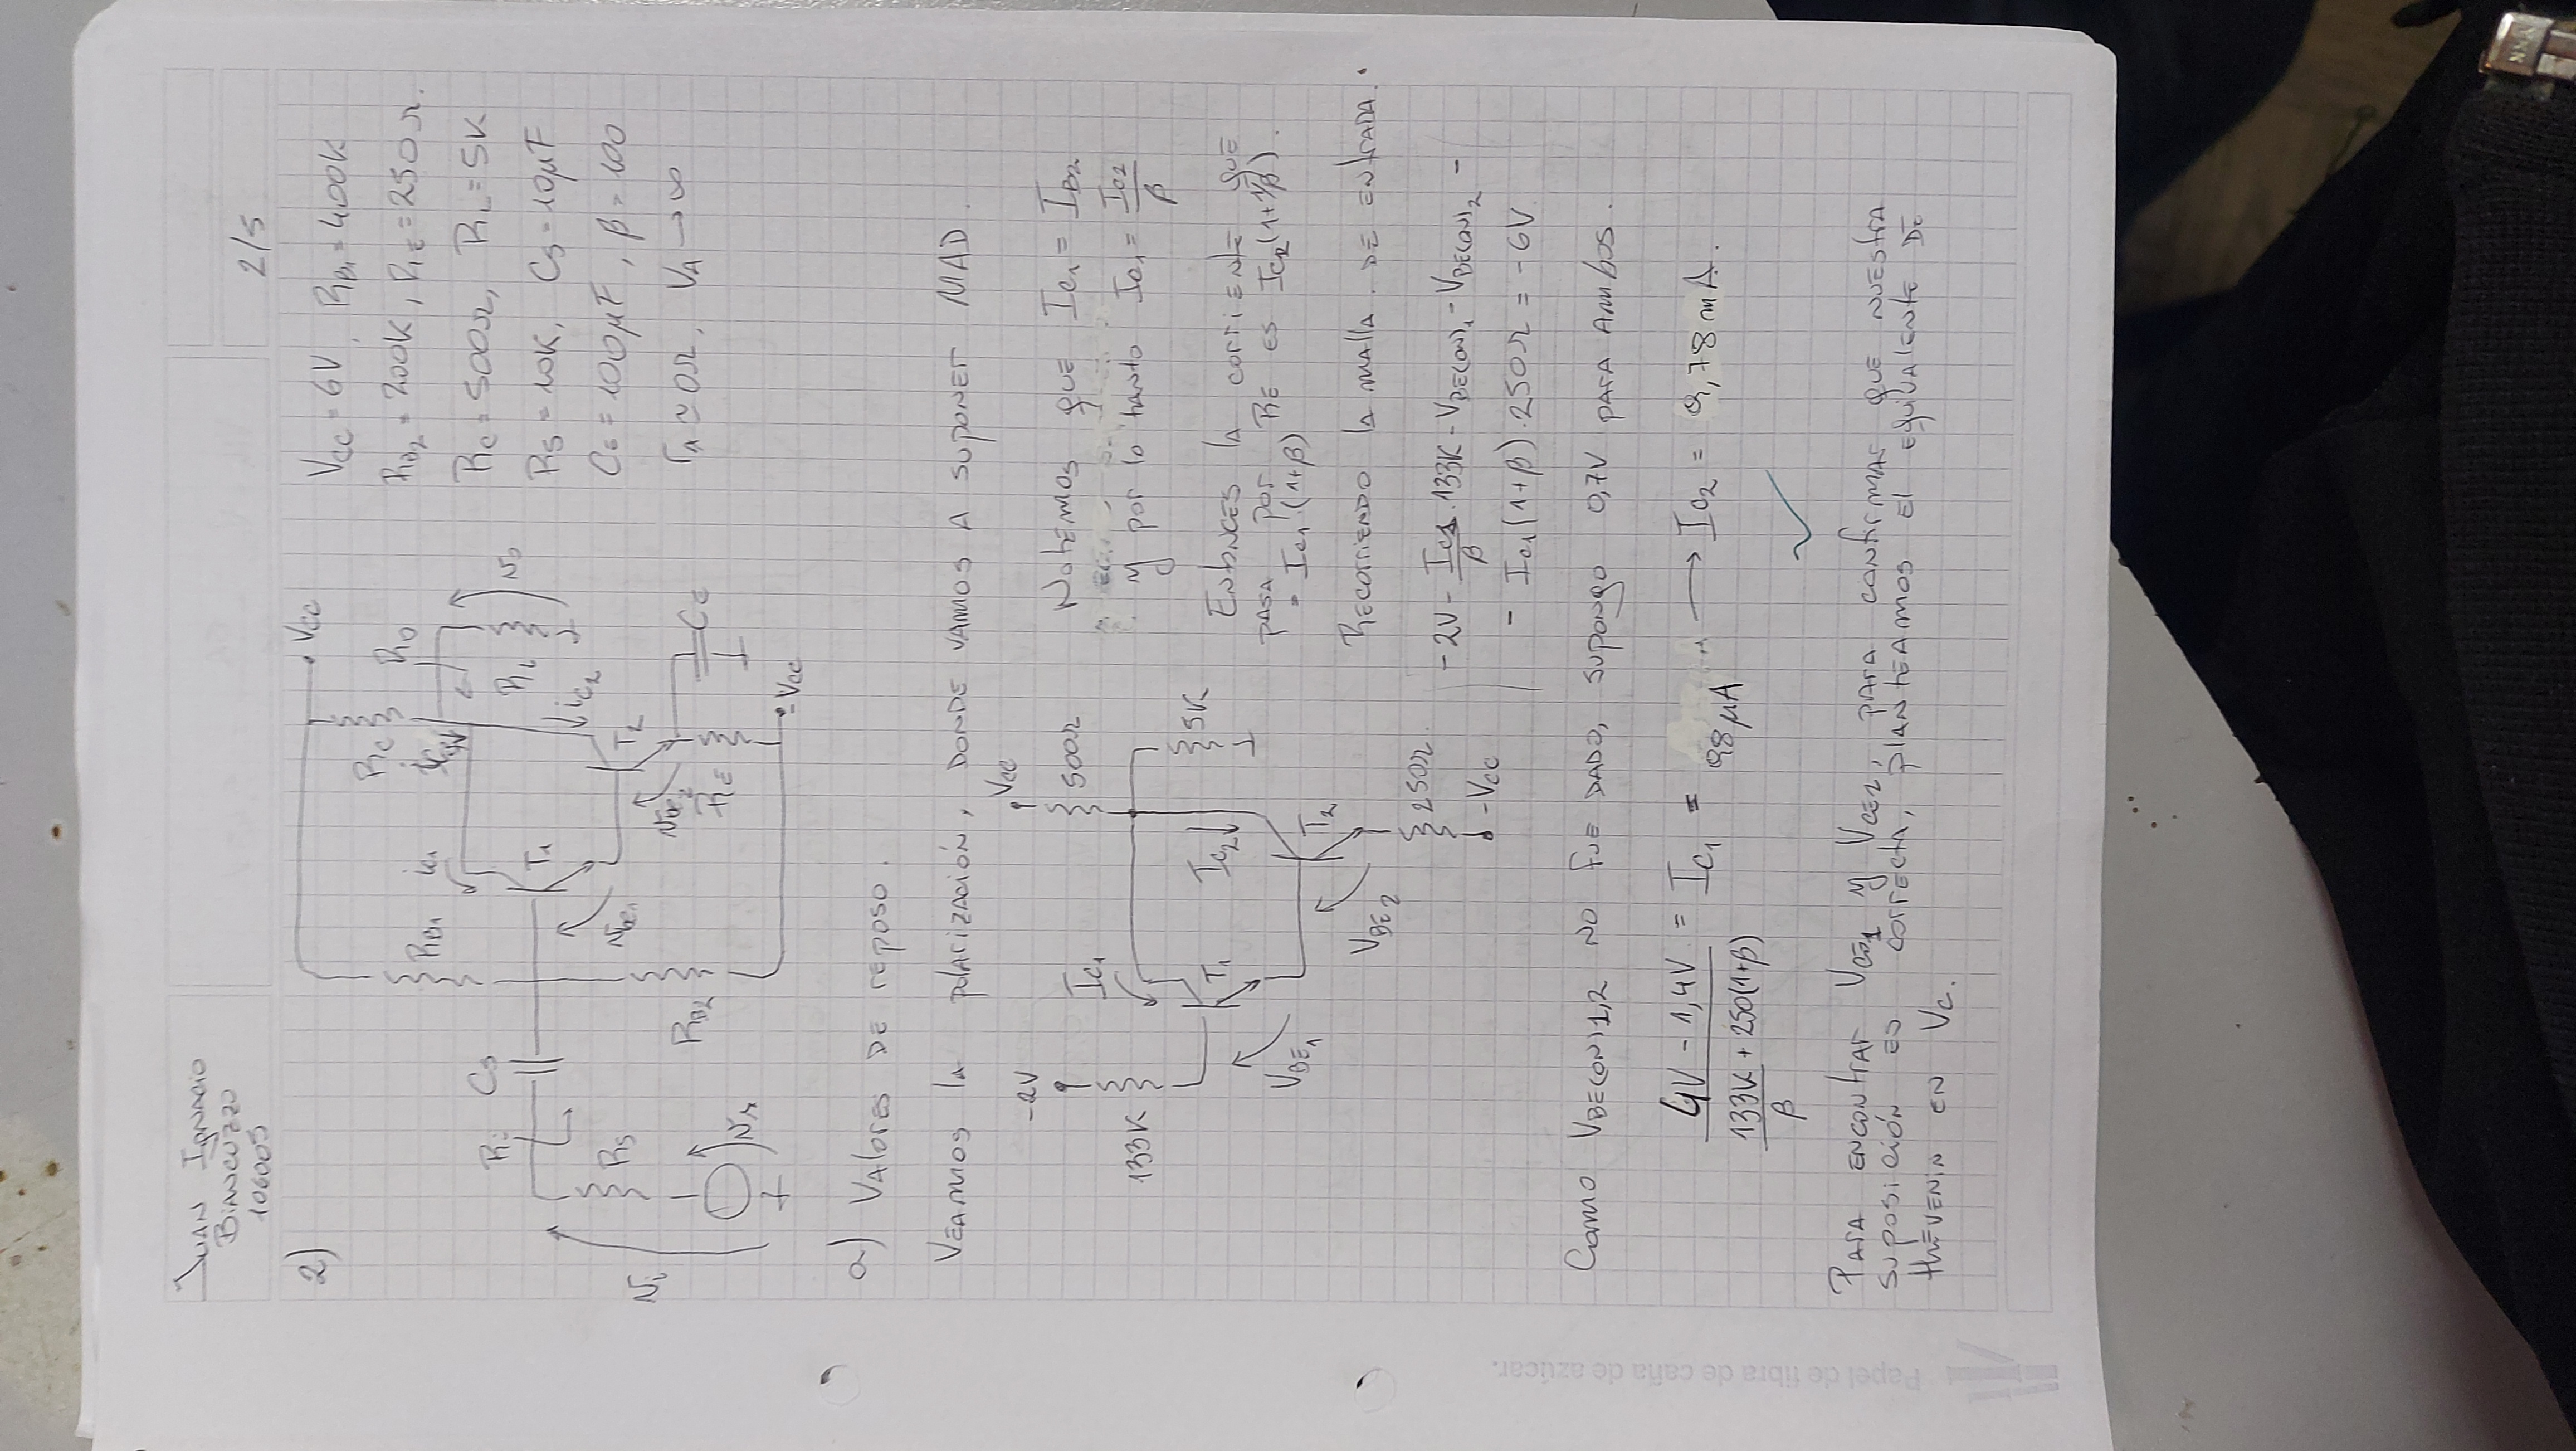 Juan Ignacio
Biancuzzo
106005
2/5
2)
Vcc
RC
Ro
RB1
ic1
Ri
Cs
T1
RL
vo
ic2
vbe1
T2
Rs
vi
vs
RB2
vbe2
RE
CE
-Vcc
Vcc = 6V, RB1 = 400K
RB2 = 200K, RE = 250Ω.
Rc = 500Ω, RL = 5K
Rs = 10K, Cs = 10μF
CE = 100μF, β = 100
rx ≃ 0Ω, VA → ∞
a) Valores de reposo.
Veamos la polarización, donde vamos a suponer MAD.
-2V
Vcc
500Ω
Ic1
133K
T1
Ic2
5K
VBE1
T2
VBE2
250Ω
-Vcc
Notemos que Ic1 = IB2
y por lo tanto Ic1 = Ic2/β
Entonces la corriente que
pasa por RE es Ic2(1+1/β).
= Ic1.(1+β)
Recorriendo la malla de entrada.
-2V - Ic1/β . 133K - VBE(ON)1 - VBE(ON)2 -
- Ic1(1+β).250Ω = -6V
Como VBE(ON)1,2 no fue dado, supongo 0,7V para ambos.
4V - 1,4V / (133K/β + 250(1+β)) = Ic1 = 98μA → Ic2 = 9,78mA.
Para encontrar VCE1 y VCE2, para confirmar que nuestra
suposición es correcta, planteamos el equivalente de
thevenin en Vc.
Papel de fibra de caña de azúcar.